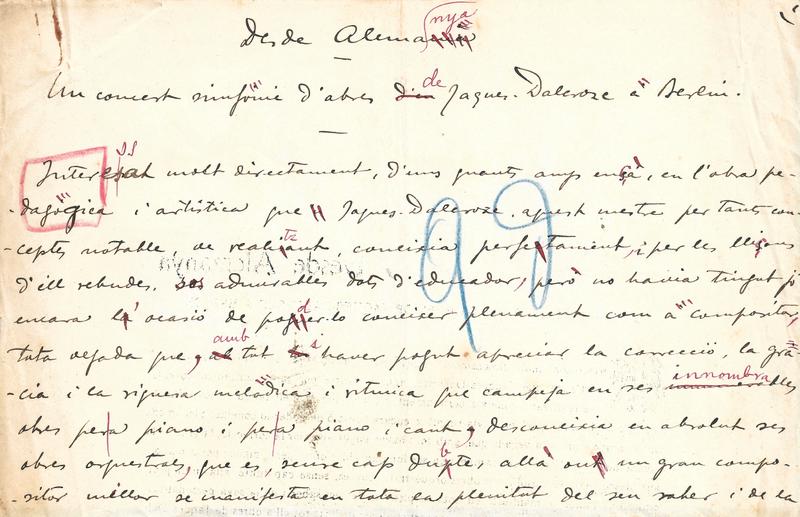 Desde Alemanya
Un concert simfonic d'obres de Jaques-Dalcroze a Berlin.
Interessat molt directament, d'uns quants anys ençà, en l'obra pe-
-dagogica i artistica que Jaques-Dalcroze, aquest mestre per tants con-
-ceptes notable, ve realitzant, coneixia perfectament, i per les lliçons
d'ell rebudes, ses admirables dots d'educador, però no havia tingut jo
encara la ocasió de poder-lo coneixer plenament com a compositor,
tota vegada que, amb tot i haver pogut apreciar la correcció, la grà-
-cia i la riquesa melodica i ritmica que campeja en ses innombrables
obres per a piano i per a piano i cant, desconeixia en absolut ses
obres orquestrals, que es, sense cap dubte, allà on un gran compo-
-sitor millor se manifesta en tota la plenitut del seu saber i de la
99
Desde Alemanya